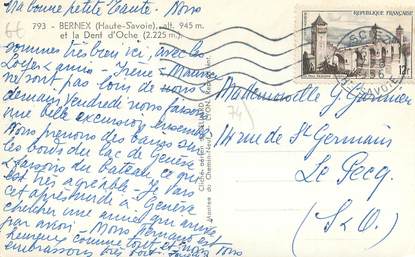 Ma bonne petite tante. Nous
793 - BERNEX (Haute-Savoie), alt. 945 m.
et la Dent d'Oche (2.225 m.)
sommes très bien ici, avec la
Irène - Maurice
ne sont pas loin de nous
demain Vendredi nous faisons
une belle excursion ensemble
Nous prenons des bains sur
les bords du lac de Genève
& faisons du bateau ce qui
est très agréable - Je vais
cet après midi à Genève
chercher une amie qui arrive
par avion -
heureux comme tout et nous
embrassons très fort
REPUBLIQUE FRANÇAISE
12F
Mademoiselle G. Garnier
14 rue de St Germain
Le Pecq
(S & O)
74